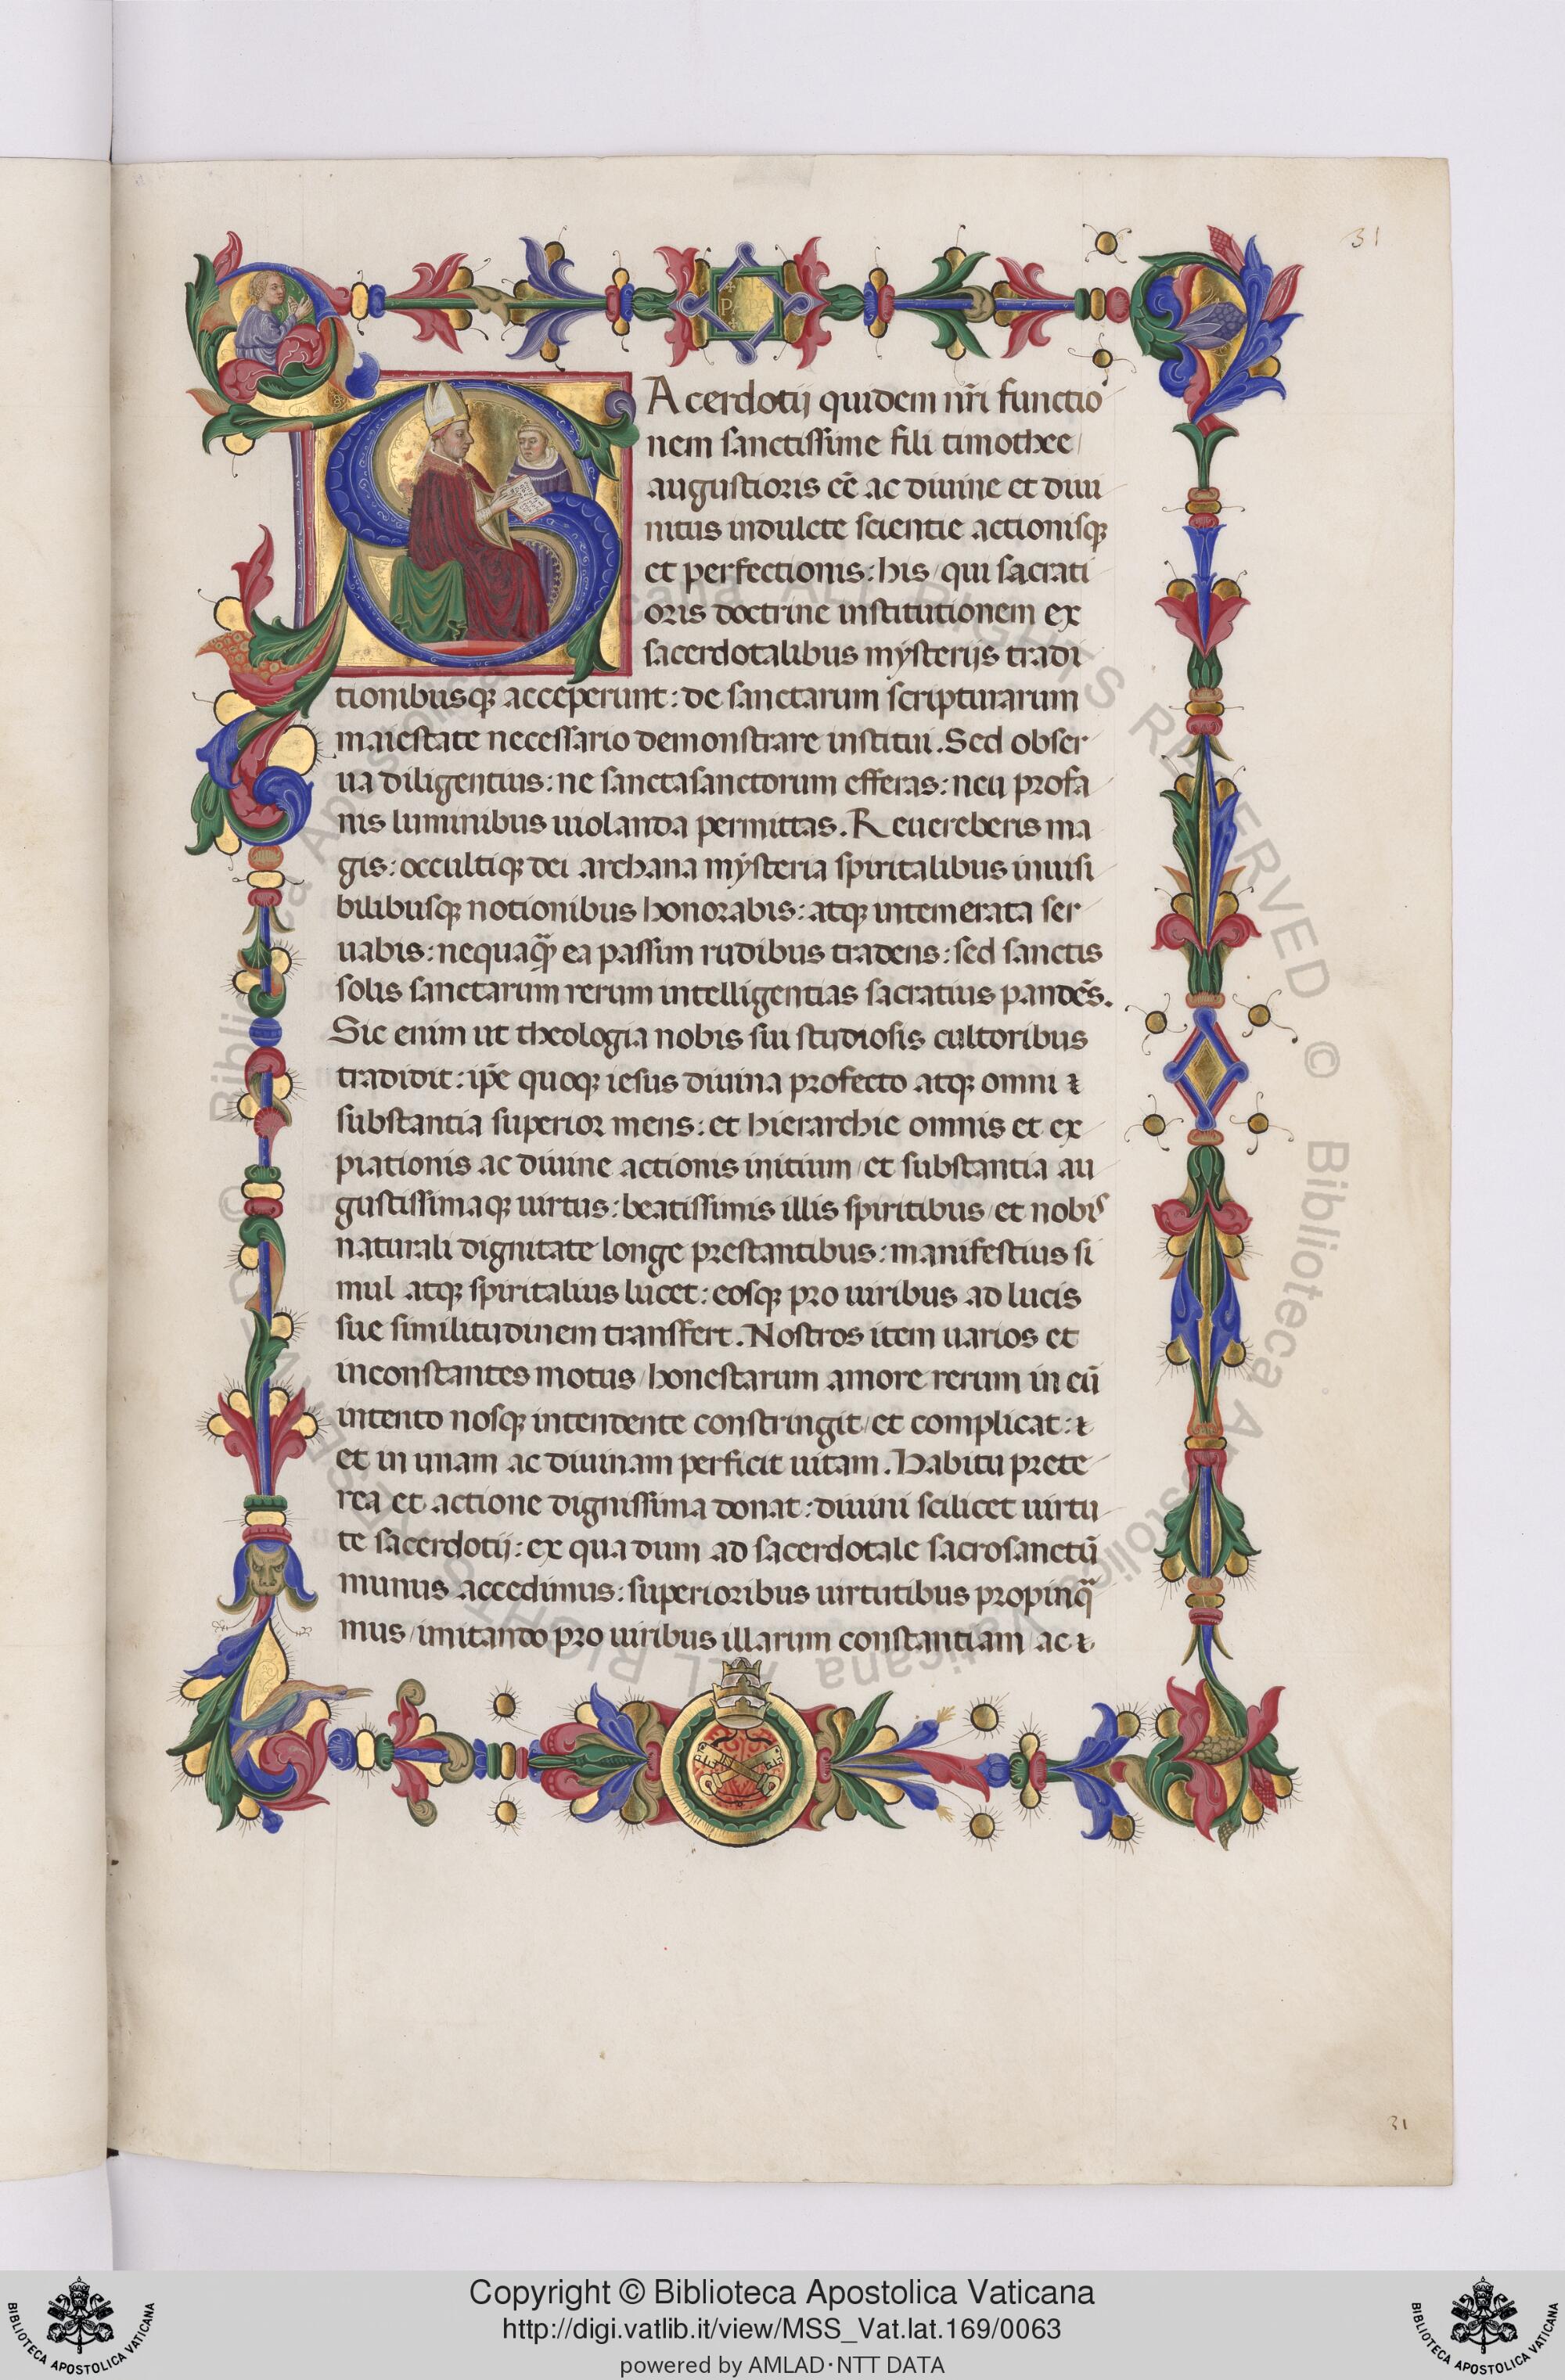 31
PAPA
SAcerdotij quidem nr̃i functio
nem sanctissime fili timothee
augustioris eẽ ac diuine et diui
nitus indulcte scientie actionisqꝫ
et perfectionis: his/ qui sacrati
oris doctrine institutionem ex
sacerdotalibus mysterijs tradi
tionibusqꝫ acceperunt: de sanctarum scripturarum
maiestate necessario demonstrare institui. Sed obser
ua diligentius: ne sanctasanctorum efferas: neu profa
nis luminibus uiolanda permittas. Reuereberis ma
gis: occultiqꝫ dei archana mẏsteria spiritalibus inuisi
bilibusqꝫ notionibus honorabis: atqꝫ intemerata ser
uabis: nequaqᷓꝫ ea passim rudibus tradens: sed sanctis
solis sanctarum rerum intelligentias sacratius pandẽs.
Sic enim ut theologia nobis sui studiosis cultoribus
tradidit: ip̃e quoqꝫ iesus diuina profecto atqꝫ omni ꝛ
substantia superior mens: et hierarchie omnis et ex
piationis ac diuine actionis initium/ et substantia au
gustissimaqꝫ uirtus: beatissimis illis spiritibus/ et nobis
naturali dignitate longe prestantibus: manifestius si
mul atqꝫ spiritalius lucet: eosqꝫ pro uiribus ad lucis
sue similitudinem transfert. Nostros item uarios et
inconstantes motus/ honestarum amore rerum in eũ
intento nosqꝫ intendente constringit/ et complicat: ꝛ
et in unam ac diuinam perficit uitam. Habitu prete
rea et actione dignissima donat: diuini scilicet uirtu
te sacerdotij: ex qua dum ad sacerdotale sacrosanctũ
munus accedimus: superioribus uirtutibus propinqᷓ
mus/ imitando pro uiribus illarum constantiam ac ꝛ
31
© Biblioteca Apostolica Vaticana ALL RIGHTS RESERVED © Biblioteca Apostolica Vaticana ALL RIGHTS RESERVED
Copyright © Biblioteca Apostolica Vaticana
http://digi.vatlib.it/view/MSS_Vat.lat.169/0063
powered by AMLAD·NTT DATA
BIBLIOTECA APOSTOLICA VATICANA
BIBLIOTECA APOSTOLICA VATICANA